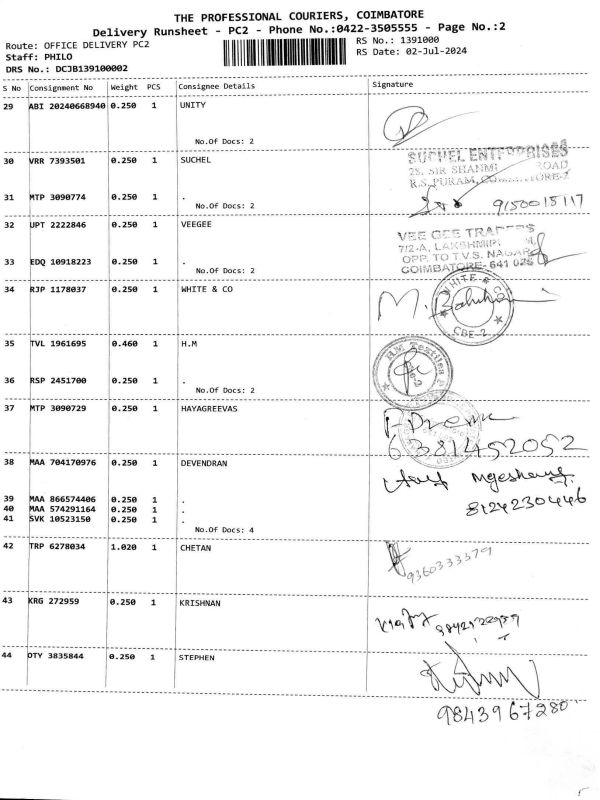 THE PROFESSIONAL COURIERS, COIMBATORE
Delivery Runsheet - PC2 - Phone No.:0422-3505555 - Page No.:2
Route: OFFICE DELIVERY PC2 RS No.: 1391000
Staff: PHILO RS Date: 02-Jul-2024
DRS No.: DCJB139100002
S No Consignment No Weight PCS Consignee Details Signature
29 ABI 20240668940 0.250 1 UNITY
No.Of Docs: 2
30 VRR 7393501 0.250 1 SUCHEL
SUCHEL ENTERPRISES
28, SIR SHANMU ROAD
R.S. PURAM, COIMBATORE-2
31 MTP 3090774 0.250 1 .
No.Of Docs: 2
9150015117
32 UPT 2222846 0.250 1 VEEGEE
VEE GEE TRADERS
7/2-A, LAKSHMIPURAM
OPP. TO T.V.S. NAGAR
COIMBATORE- 641 025
33 EDQ 10918223 0.250 1 .
No.Of Docs: 2
34 RJP 1178037 0.250 1 WHITE & CO
WHITE & CO
CBE-2
35 TVL 1961695 0.460 1 H.M
HM Textiles
36 RSP 2451700 0.250 1 .
No.Of Docs: 2
37 MTP 3090729 0.250 1 HAYAGREEVAS
6381452052
38 MAA 704170976 0.250 1 DEVENDRAN
8124230446
39 MAA 866574406 0.250 1 .
40 MAA 574291164 0.250 1 .
41 SVK 10523150 0.250 1 .
No.Of Docs: 4
42 TRP 6278034 1.020 1 CHETAN
9360333379
43 KRG 272959 0.250 1 KRISHNAN
44 OTY 3835844 0.250 1 STEPHEN
9843967280